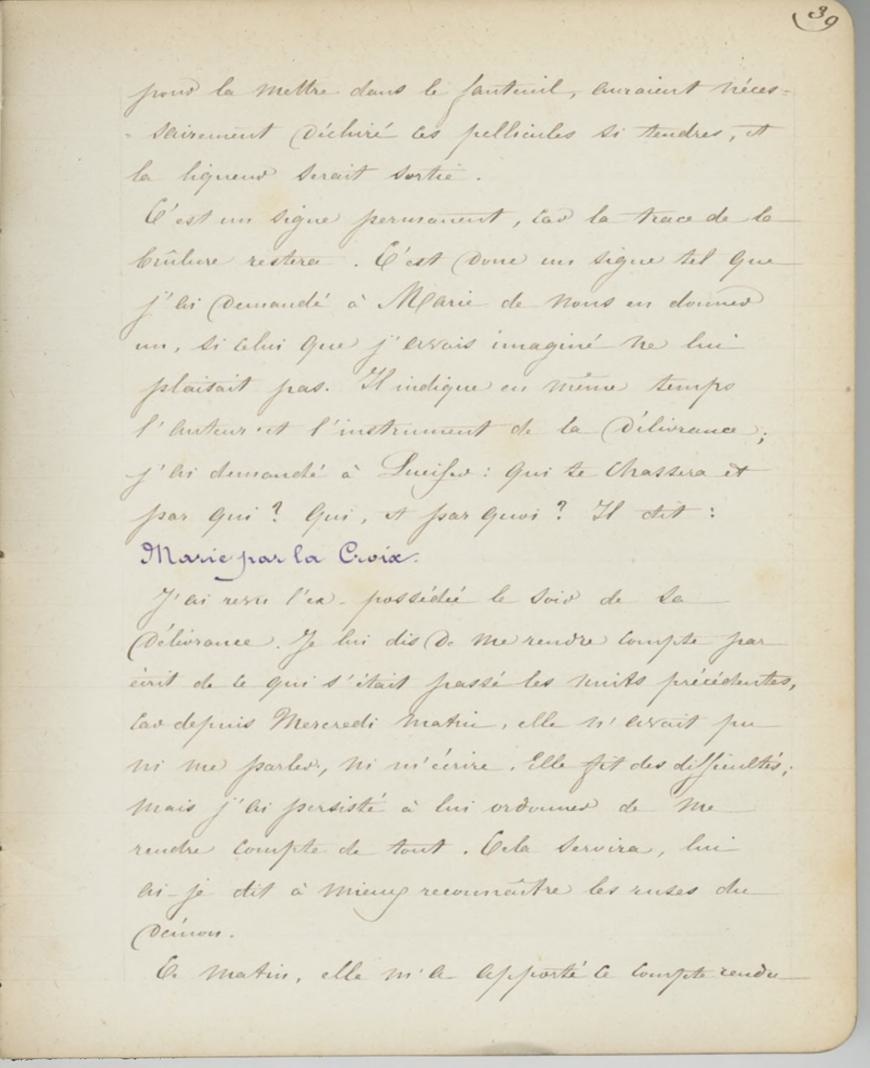 39
pour la mettre dans le fauteuil, auraient néces-
-sairement déchiré ces pellicules si tendres, et
la liqueur serait sortie.
C'est un signe permanent, car la trace de la
brûlure restera. C'est donc un signe tel que
j'ai demandé à Marie de nous en donner
un, si celui que j'avais imaginé ne lui
plaisait pas. Il indique en même temps
l'auteur et l'instrument de la Délivrance;
j'ai demandé à Lucifer: qui te chassera et
par qui? Qui, et par quoi? Il dit:
Marie par la Croix.
J'ai revu l'ex-possédée le soir de sa
Délivrance. Je lui dis de me rendre compte par
écrit de ce qui s'était passé les nuits précédentes,
car depuis Mercredi matin, elle n'avait pu
ni me parler, ni m'écrire. Elle fit des difficultés;
mais j'ai persisté à lui ordonner de me
rendre compte de tout. Cela servira, lui
ai-je dit à mieux reconnaître les ruses du
Démon.
Ce matin, elle m'a apporté ce compte rendu